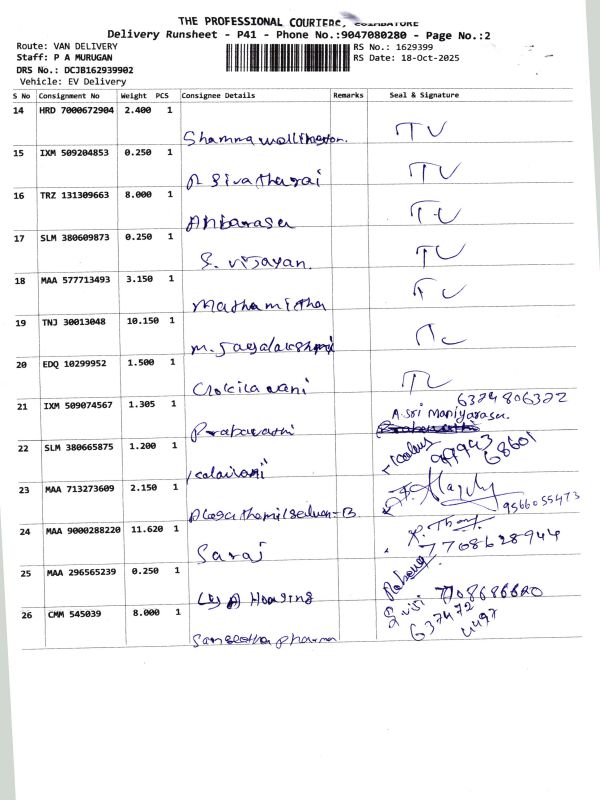 THE PROFESSIONAL COURIERS, COIMBATORE
Delivery Runsheet - P41 - Phone No.:9047080280 - Page No.:2
Route: VAN DELIVERY
RS No.: 1629399
Staff: P A MURUGAN
RS Date: 18-Oct-2025
DRS No.: DCJB162939902
Vehicle: EV Delivery
S No Consignment No Weight PCS Consignee Details Remarks Seal & Signature
14 HRD 7000672904 2.400 1
TV
15 IXM 509204853 0.250 1
TV
16 TRZ 131309663 8.000 1
Anbarasu TV
17 SLM 380609873 0.250 1
S. vijayan. TV
18 MAA 577713493 3.150 1
Mathamitha
19 TNJ 30013048 10.150 1
20 EDQ 10299952 1.500 1
Cokilavani
6374806322
21 IXM 509074567 1.305 1
A. Sri Maniyarasu.
22 SLM 380665875 1.200 1
99943
68601
Kalaivani
23 MAA 713273609 2.150 1
9566055473
24 MAA 9000288220 11.620 1
7708628944
Saraj
25 MAA 296565239 0.250 1
Housing
26 CMM 545039 8.000 1
637472
4497
Sangeetha pharma